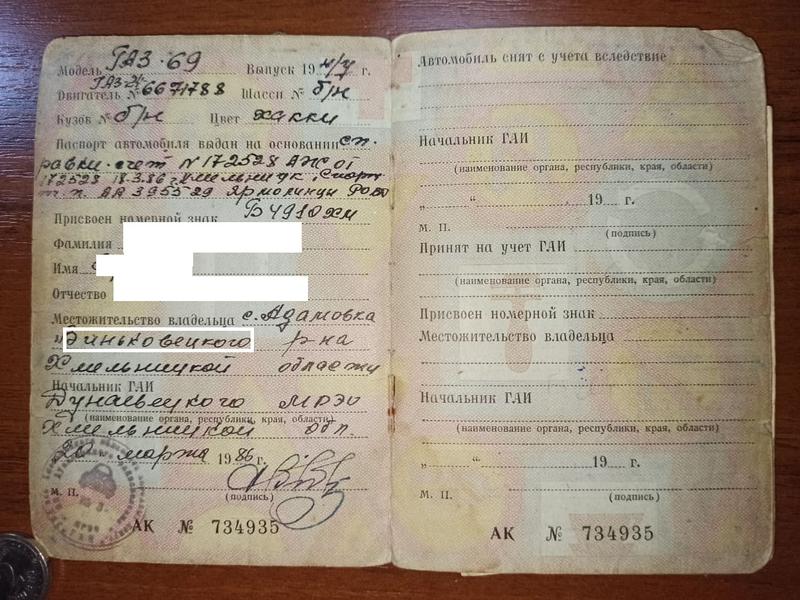 Модель ГАЗ-69 Выпуск 19 н/у г.
ГАЗ-21
Двигатель № 6671788 Шасси № б/н
Кузов № б/н Цвет хакки
Паспорт автомобиля выдан на основании сп
равки-счет № 172528 АЖ от
172528 18.3.86 г. Хмельницк, Спорт
т.п. АА 395529 Ярмолинцы РОВД
Присвоен номерной знак Б 4910 хм
Фамилия
Имя
Отчество
Местожительство владельца с. Адамовка
Виньковецкого р-на
Хмельницкой области
Начальник ГАИ
Дунаевецкого МРЭО
(наименование органа, республики, края, области)
Хмельницкой обл.
марта 1986 г.
(подпись)
М. П.
АК № 734935
Автомобиль снят с учета вследствие
Начальник ГАИ
(наименование органа, республики, края, области)
„ “ 19 г.
М. П. (подпись)
Принят на учет ГАИ
(наименование органа, республики, края, области)
Присвоен номерной знак
Местожительство владельца
Начальник ГАИ
(наименование органа, республики, края, области)
„ “ 19 г.
М. П. (подпись)
АК № 734935